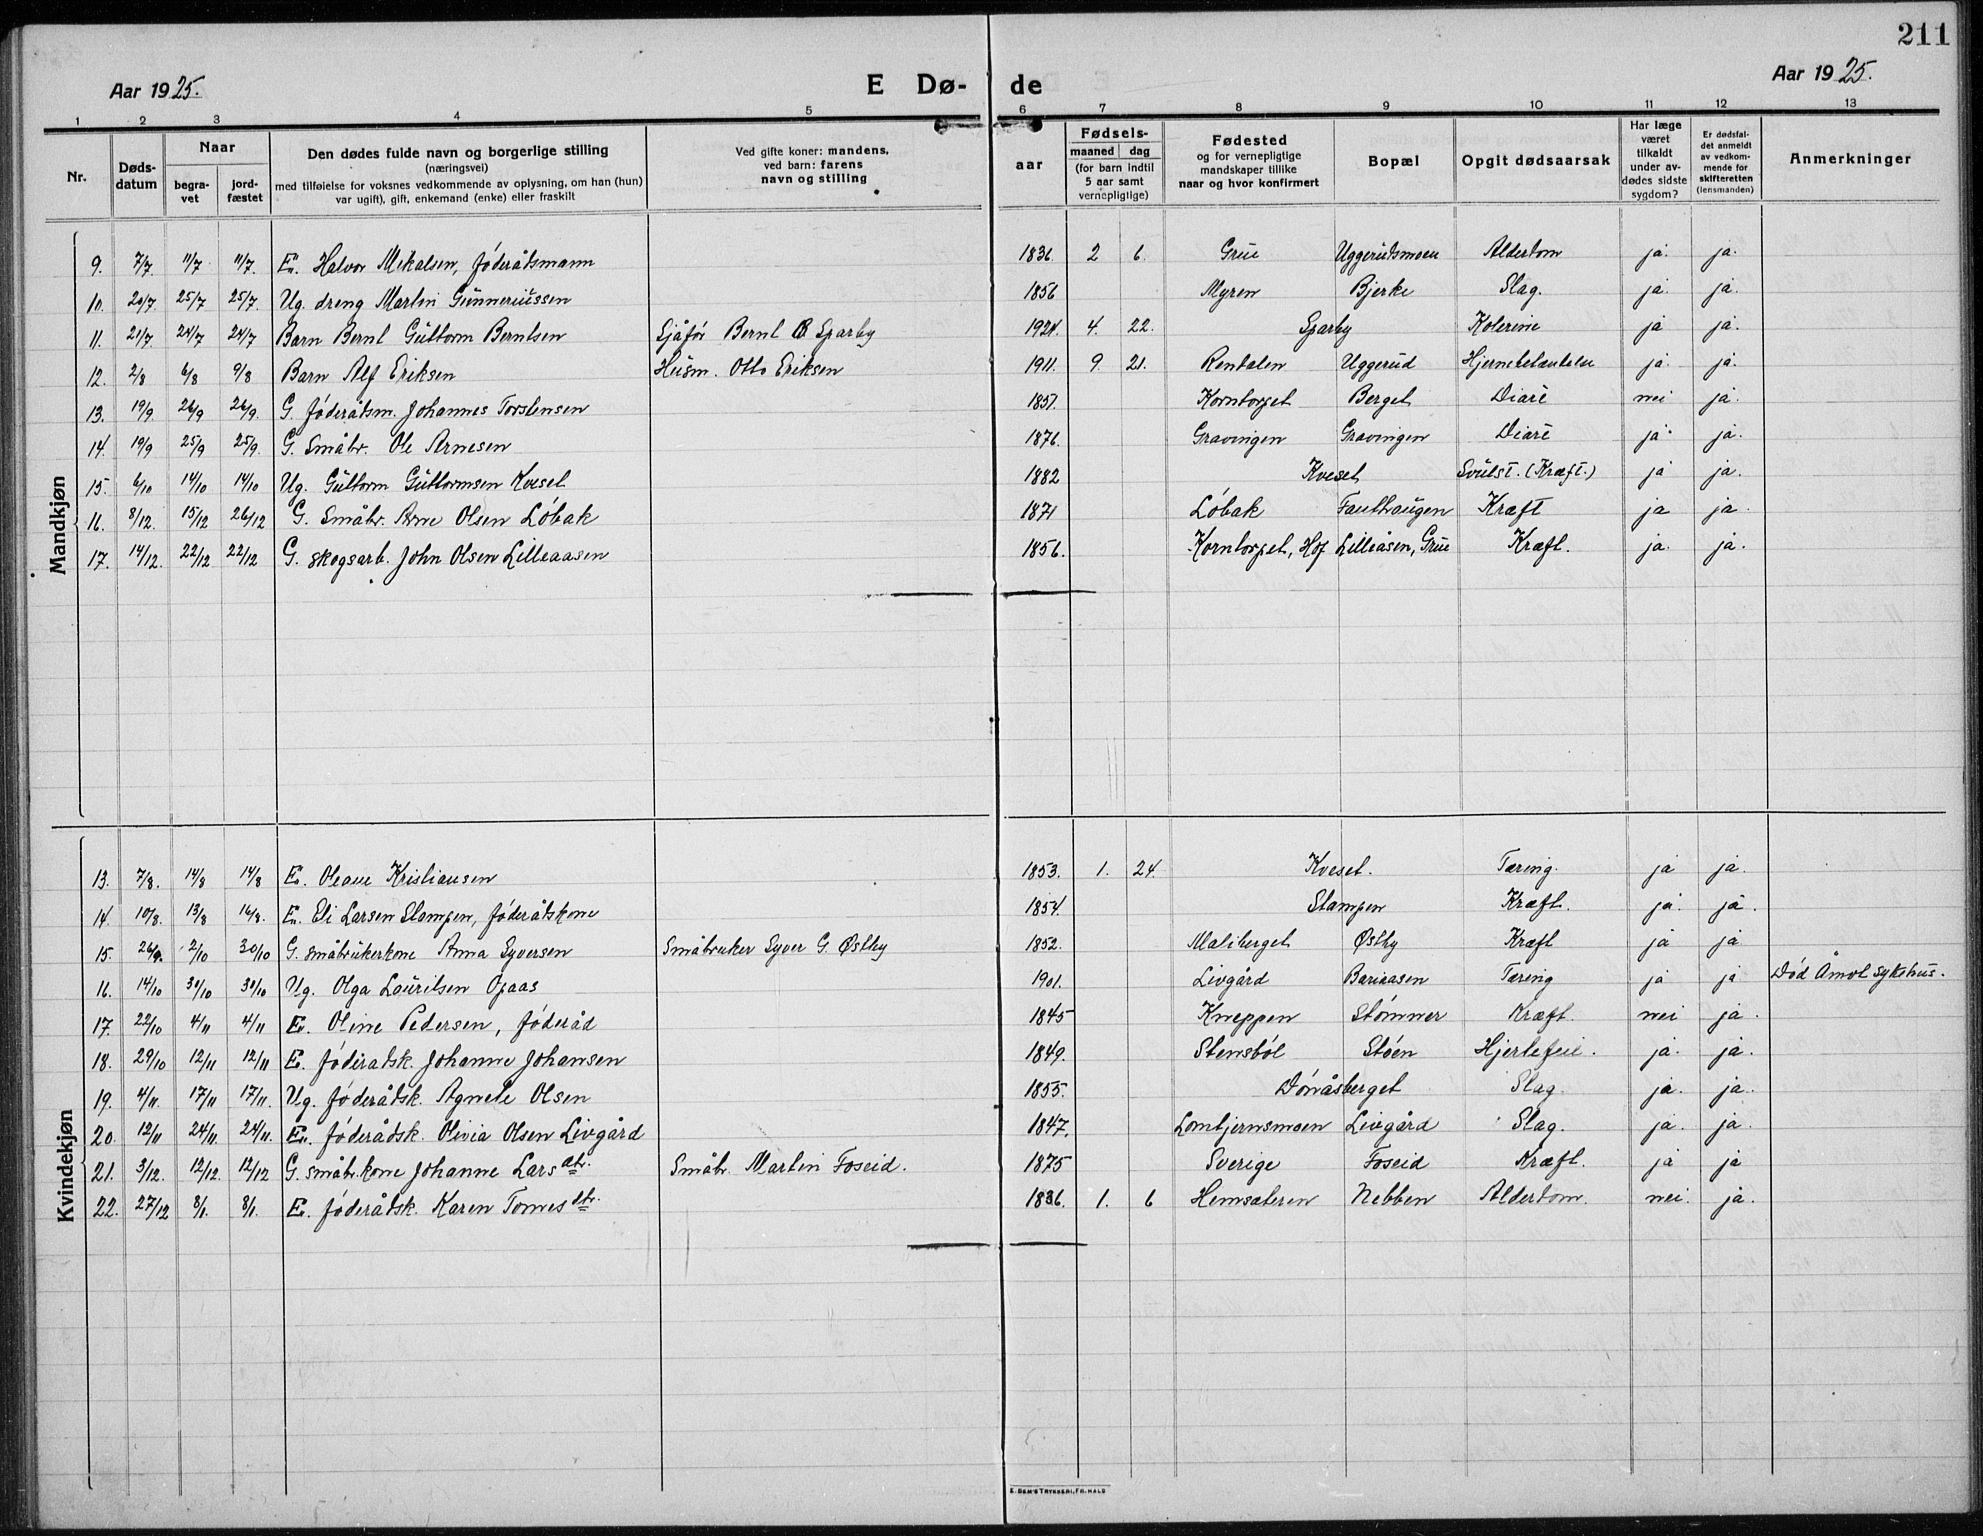 211
Aar 1925. E Dø- de Aar 1925.
1 2 3 4 5 6 7 8 9 10 11 12 13
Nr. Døds-datum Naar begra-vet jord-fæstet Den dødes fulde navn og borgerlige stilling (næringsvei) med tilføielse for voksnes vedkommende av oplysning, om han (hun) var ugift), gift, enkemand (enke) eller fraskilt Ved gifte koner: mandens, ved barn: farens navn og stilling aar Fødsels- maaned dag (for barn indtil 5 aar samt vernepligtige) Fødested og for vernepligtige mandskaper tillike naar og hvor konfirmert Bopæl Opgit dødsaarsak Har læge været tilkaldt under av-dødes sidste sygdom? Er dødsfal-det anmeldt av vedkom-mende for skifteretten (lensmanden) Anmerkninger
Mandkjøn
9. 7/7. 11/7 11/7. En Halvor Mikalsen, føderåtsmann 1836. 2 6. Grue Uggerudsmoen Alderdom ja. ja.
10. 20/7 25/7 25/7. Ug. dreng Martin Gunneriussen 1856 Myren Bjerke Slag. ja. ja.
11. 21/7. 24/7 24/7 Barn Bernt Guttorm Berntsen Sjåfør Bernt Sparby 1924. 4. 22. Sparby Kolerine ja ja.
12. 2/8 6/8 9/8 Barn Alf Eriksen Husm. Otto Eriksen 1911. 9. 21. Rendalen Uggerud Hjernebetændelse ja. ja.
13. 19/9. 26/9 26/9. G. føderåtsm. Johannes Torstensen 1857. Korntorpet Berget Diaré nei ja.
14. 19/9 25/9 25/9. G. Småbr. Ole Arnesen 1876. Gravingen Gravingen Diaré ja. ja.
15. 6/10 14/10 14/10 Ug. Guttorm Guttormsen Kveset 1882 Kveset Svulst. (Kræft.) ja ja.
16. 8/12. 15/12 26/12 G. Småbr. Arne Olsen Løbak 1871 Løbak Fauthaugen Kræft ja ja.
17. 14/12. 22/12 22/12 G. skogsarb. John Olsen Lilleaasen 1856. Korntorpet, Hof Lilleåsen, Grue Kræft. ja. ja.
Kvindekjøn
13. 7/8. 14/8 14/8 E. Oleane Kristiansen 1853. 1. 24. Kveset. Tæring. ja ja.
14. 10/8. 13/8 16/8. E. Eli Larsen Stampen, føderåtskone 1854. Stampen Kræft. ja. ja.
15. 26/9. 2/10 30/10 G. småbrukerkone Anna Syversen Småbruker Syver G. Østby 1852. Maliberget Østby Kræft ja ja.
16. 14/10 30/10 30/10 Ug. Olga Lauritsen Opaas 1901. Livgård Tæring ja ja Død Åmot sykehus.
17. 22/10 4/11 4/11 E. Oline Pedersen, føderåd 1845 Kneppen Stømner Kræft. nei ja.
18. 29/10 12/11 12/11 E. føderatsk. Johanne Johansen 1849. Stemsbøl Støen Hjertefeil. ja. ja.
19. 4/11. 17/11 17/11. Ug. føderåtsk. Agnete Olsen 1855. Dønåsberget Slag. ja. ja.
20. 12/11 24/11. 24/11. E. føderådsk. Olivia Olsen Livgård 1847. Lomtjernsmoen Livgård Slag. ja. ja.
21. 3/12. 12/12. 12/12 G. småbr.kone Johanne Larsdtr. Småbr. Martin Foseid. 1875 Sverige Foseid Kræft. ja ja
22. 27/12 8/1. 8/1. E. føderådsk. Karen Tomesdtr. 1836. 1. 6 Hemsæteren Nebben Alderdom. nei. ja.
E. SEM'S TRYKKERI, FR.HALD